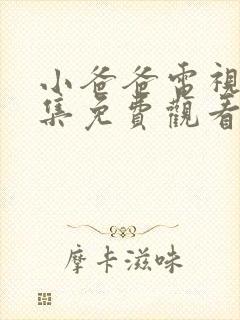 小爸爸電視
集免費觀看
摩卡滋味